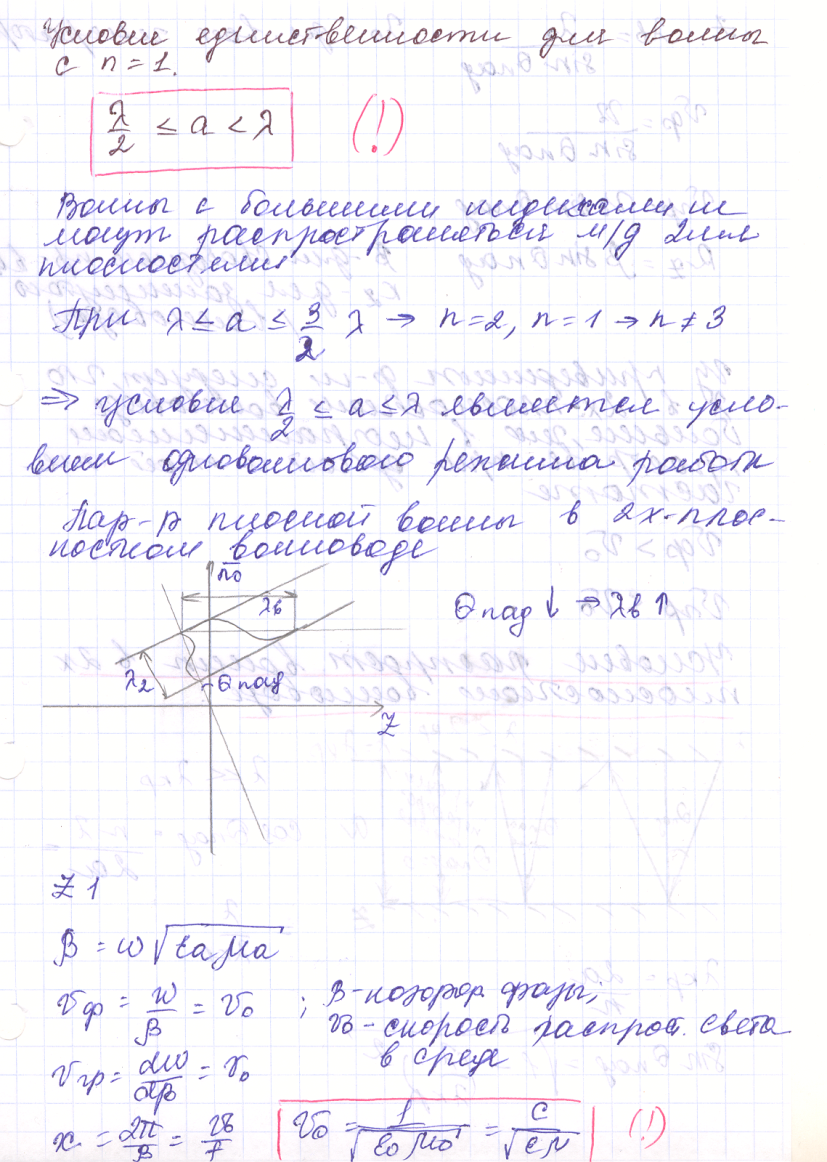 Условие единственности для волны
с n = 1.
λ/2 ≤ a < λ (!)
Волны с большими индексами не
могут распространяться м/д 2мя
плоскостями
При λ ≤ a ≤ 3/2 λ → n=2, n=1 → n ≠ 3
⇒ условие λ/2 ≤ a ≤ λ является усло-
вием одноволнового режима работы
Пар-р плоской волны в 2х-плос-
костном волноводе
n̄₀
λв
Θпад ↓ → λв ↑
λ2
Θпад
Z
Z 1
β = ω√(εa μa)
vф = ω/β = v₀ ; β-коэфф. фазы;
v₀ - скорость распрост. света
в среде
vгр = dω/dβ = v₀
x = 2π/β = v₀/f
v₀ = 1/√(ε₀ μ₀) = c/√(εμ) (!)